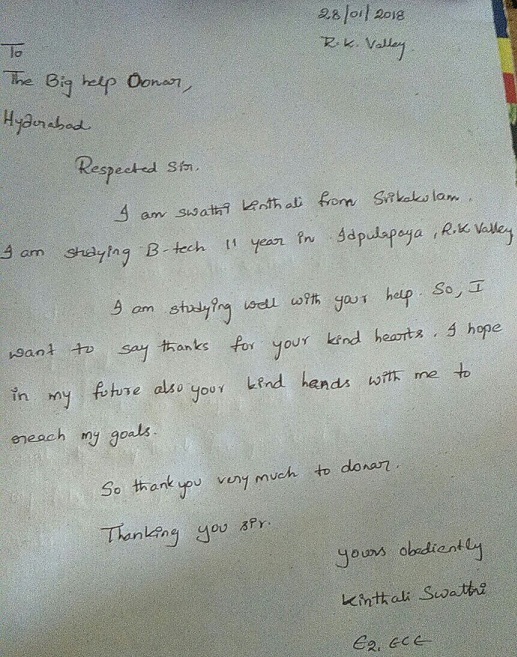 28/01/2018
R.K. Valley
To
The Big help Donar,
Hyderabad
Respected Sir.
I am swathi kinthali from Srikakulam.
I am studying B-tech 11 year in Idpulapaya, R.K Valley
I am studying well with your help. So, I
want to say thanks for your kind hearts. I hope
in my future also your kind hands with me to
reach my goals.
So thank you very much to donar.
Thanking you sir.
yours obediently
kinthali Swathi
E2, ECE